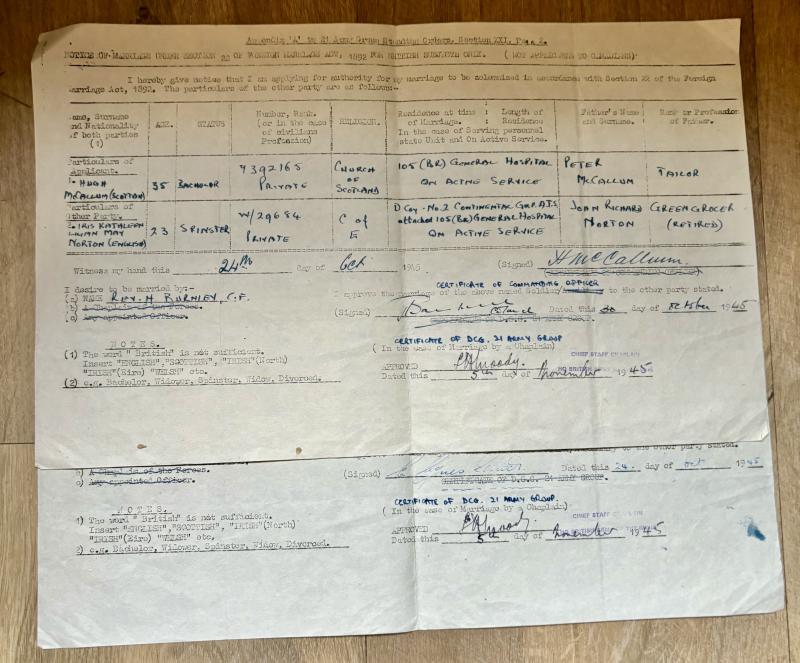 Appendix 'A' to 21 Army Group Standing Orders, Section XXI, Para 2.
NOTICE OF MARRIAGE UNDER SECTION 22 OF FOREIGN MARRIAGE ACT, 1892 FOR BRITISH SUBJECTS ONLY. (NOT APPLICABLE TO CIVILIANS)
I hereby give notice that I am applying for authority for my marriage to be solemnized in accordance with Section 22 of the Foreign
Marriage Act, 1892. The particulars of the other party are as follows:-
Name, Surname and Nationality of both parties (1)
AGE.
STATUS
Number, Rank. (or in the case of civilians Profession)
RELIGION.
Residence at time of Marriage. In the case of Serving personnel state Unit and On Active Service.
Length of Residence
Father's Name and Surname.
Rank or Profession of Father.
Particulars of Applicant.
HUGH McCALLUM (SCOTTISH)
35
BACHELOR
PRIVATE
CHURCH OF SCOTLAND
105 (BR) GENERAL HOSPITAL ON ACTIVE SERVICE
PETER McCALLUM
TAILOR
Particulars of Other Party.
IRIS KATHLEEN LILIAN MAY NORTON (ENGLISH)
23
SPINSTER
W/29684 PRIVATE
C of E
D Coy. No. 2 CONTINENTAL GRP. A.T.S. attached 105 (BR) GENERAL HOSPITAL ON ACTIVE SERVICE
RICHARD NORTON
GREEN GROCER (RETIRED)
Witness my hand this 24th day of Oct 1945 (Signed) H McCallum.
I desire to be married by:-
(a) NAME REV. H. BURNLEY, C.F.
(b) A Chaplain of the Forces.
(c) Any appointed Officer.
CERTIFICATE OF COMMANDING OFFICER
I approve the marriage of the above named Soldier/ to the other party stated.
(Signed) Dated this 30 day of October 1945
NOTES.
(1) The word "British" is not sufficient.
Insert "ENGLISH", "SCOTTISH", "IRISH"(North)
"IRISH"(Eire) "WELSH" etc.
(2) e.g. Bachelor, Widower, Spinster, Widow, Divorced.
CERTIFICATE OF DCG. 21 ARMY GROUP
( In the case of Marriage by a Chaplain)
APPROVED
CHIEF STAFF CHAPLAIN
Dated this 5th day of November 1945
to the other party stated.
b) A Chaplain of the Forces.
c) Any appointed Officer.
(Signed) Dated this 24. day of Oct 1945
CERTIFICATE OF D.C.G. 21 ARMY GROUP.
NOTES.
1) The word "British" is not sufficient.
Insert "ENGLISH", "SCOTTISH", "IRISH"(North)
"IRISH"(Eire) "WELSH" etc.
2) e.g. Bachelor, Widower, Spinster, Widow, Divorced.
CERTIFICATE OF DCG. 21 ARMY GROUP.
( In the case of Marriage by a Chaplain)
APPROVED
CHIEF STAFF CHAPLAIN
Dated this 5th day of November 1945